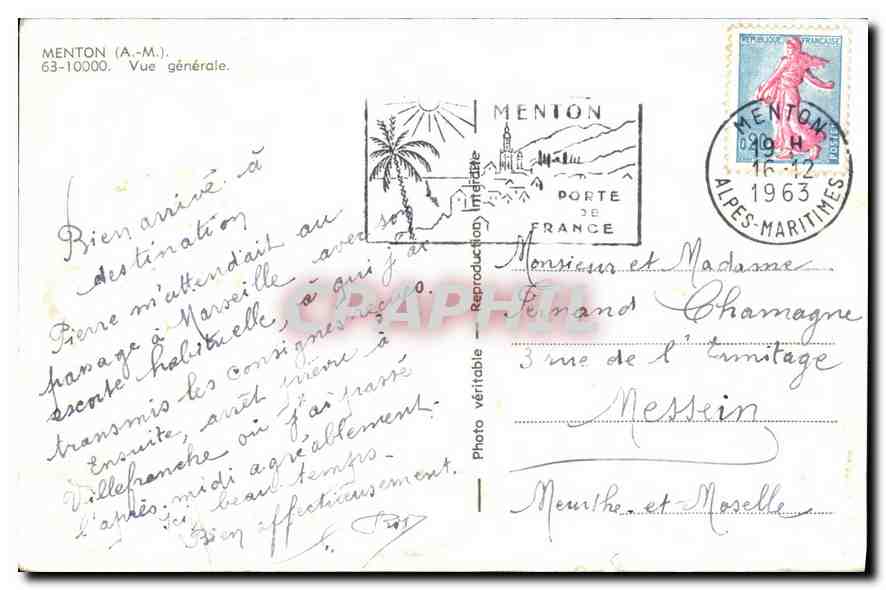 MENTON (A.-M.).
63-10000. Vue générale.
RÉPUBLIQUE FRANÇAISE
0,20
POSTES
MENTON
PORTE
DE
FRANCE
MENTON
19 H
16-12
1963
ALPES-MARITIMES
Photo véritable - Reproduction interdite
CPAPHIL
Bien arrivé à
destination
Pierre m'attendait au
passage à Marseille avec son
escorte habituelle, à qui j'ai
transmis les consignes reçues.
Ensuite, arrêt à
Villefranche où j'ai passé
l'après-midi agréablement.
ici, beau temps.
Bien affectueusement.
Monsieur et Madame
Fernand Chamagne
3 rue de l'Ermitage
Messein
Meurthe-et-Moselle